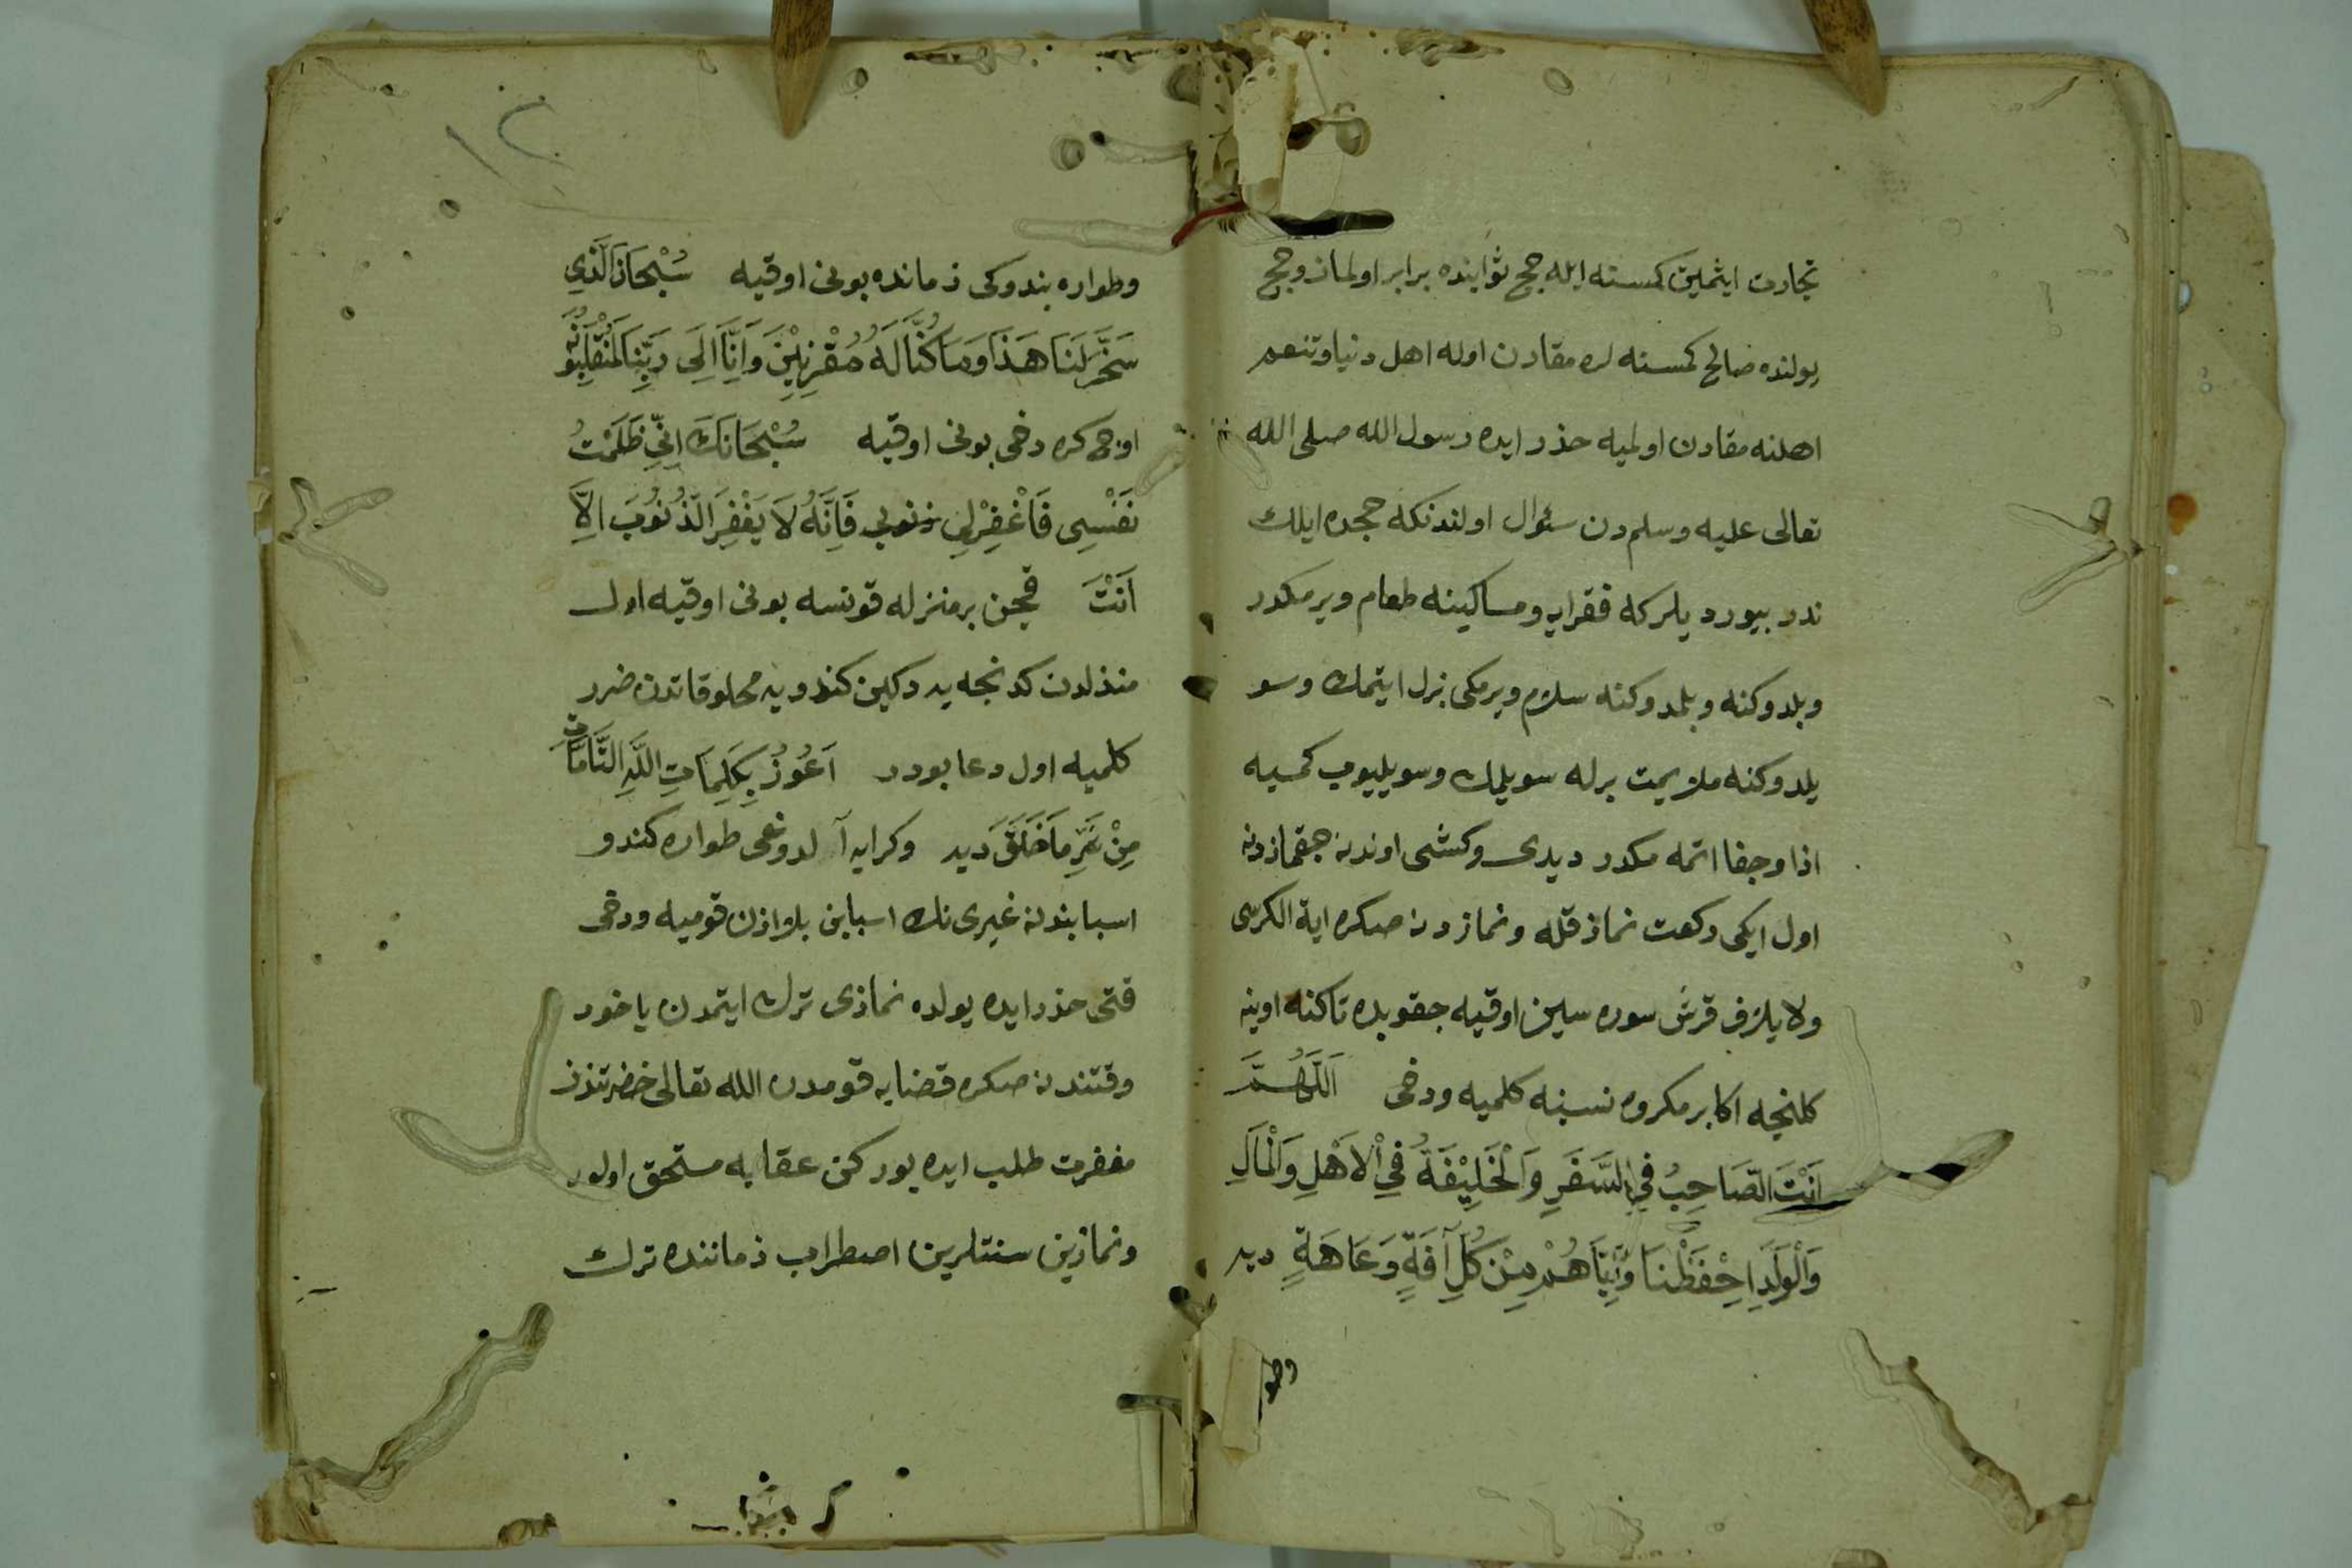 تجارت ایتمین کمسنه ایله حج ثوابنده برابر اولماز و حج
یولنده صالح کمسنه لره مقارن اوله اهل دنیا و تنعم
اهلنه مقارن اولمیه حذر ایده رسول الله صلی الله
تعالی علیه وسلم دن سئوال اولندیکه حجده ایلك
ندر بیوردیلر که فقرایه و مساکینه طعام ویرمکدر
و بلدوکنه و بلمدوکنه سلام ویرمکی بزل ایتمك و سو
یلدوکنه ملایمت برله سویلمك و سویلیوب کمسیه
اذا و جفا اتمه مکدر دیدی و کشی اوندن جقمازدن
اول ایکی رکعت نماز قله و نمازدن صکره ایة الکرسی
و لایلاف قرش سوره سین اوقیه جقوبده تاکنه اوینه
کلنجه اکا بر مکروه نسنه کلمیه و دخی اَللّٰهُمَّ
اَنْتَ الصَّاحِبُ فِي السَّفَرِ وَالْخَلِيْفَةُ فِي الْاَهْلِ وَالْمَالِ
وَالْوَلَدِ اِحْفَظْنَا وَاِيَّاهُمْ مِنْ كُلِّ آفَةٍ وَعَاهَةٍ دیه
وطو
١٢
و طواره بندوکی زمانده بونی اوقیه سُبْحَانَ الَّذِي
سَخَّرَ لَنَا هَذَا وَمَا كُنَّا لَهُ مُقْرِنِيْنَ وَاِنَّا اِلَى رَبِّنَا لَمُنْقَلِبُونَ
اوچ کره دخی بونی اوقیه سُبْحَانَكَ اِنِّي ظَلَمْتُ
نَفْسِى فَاغْفِرْلِي زنوبي فَاِنَّهُ لَا يَغْفِرُ الذُنُوْبَ اِلَّا
اَنْتَ قچن بر منزله قونسه بونی اوقیه اول
منذلدن کدنجه یه دکین کندویه مخلوقاتدن ضرر
کلمیه اول دعا بودر اَعُوْذُ بِكَلِمَاتِ اللَّهِ التَّامَّاتِ
مِنْ شَرِّ مَا خَلَقَ دیه و کرایه آلدوغی طواره کندو
اسبابندن غیری نك اسبابن بلا اذن قومیه و دخی
قتی حذر ایده یولده نمازی ترك ایتمدن یاخود
وقتندن صکره قضایه قومدن الله تعالی حضرتندن
مغفرت طلب ایده یورکن عقابه مستحق اولور
و نمازین سنتلرین اصطراب زماننده ترك